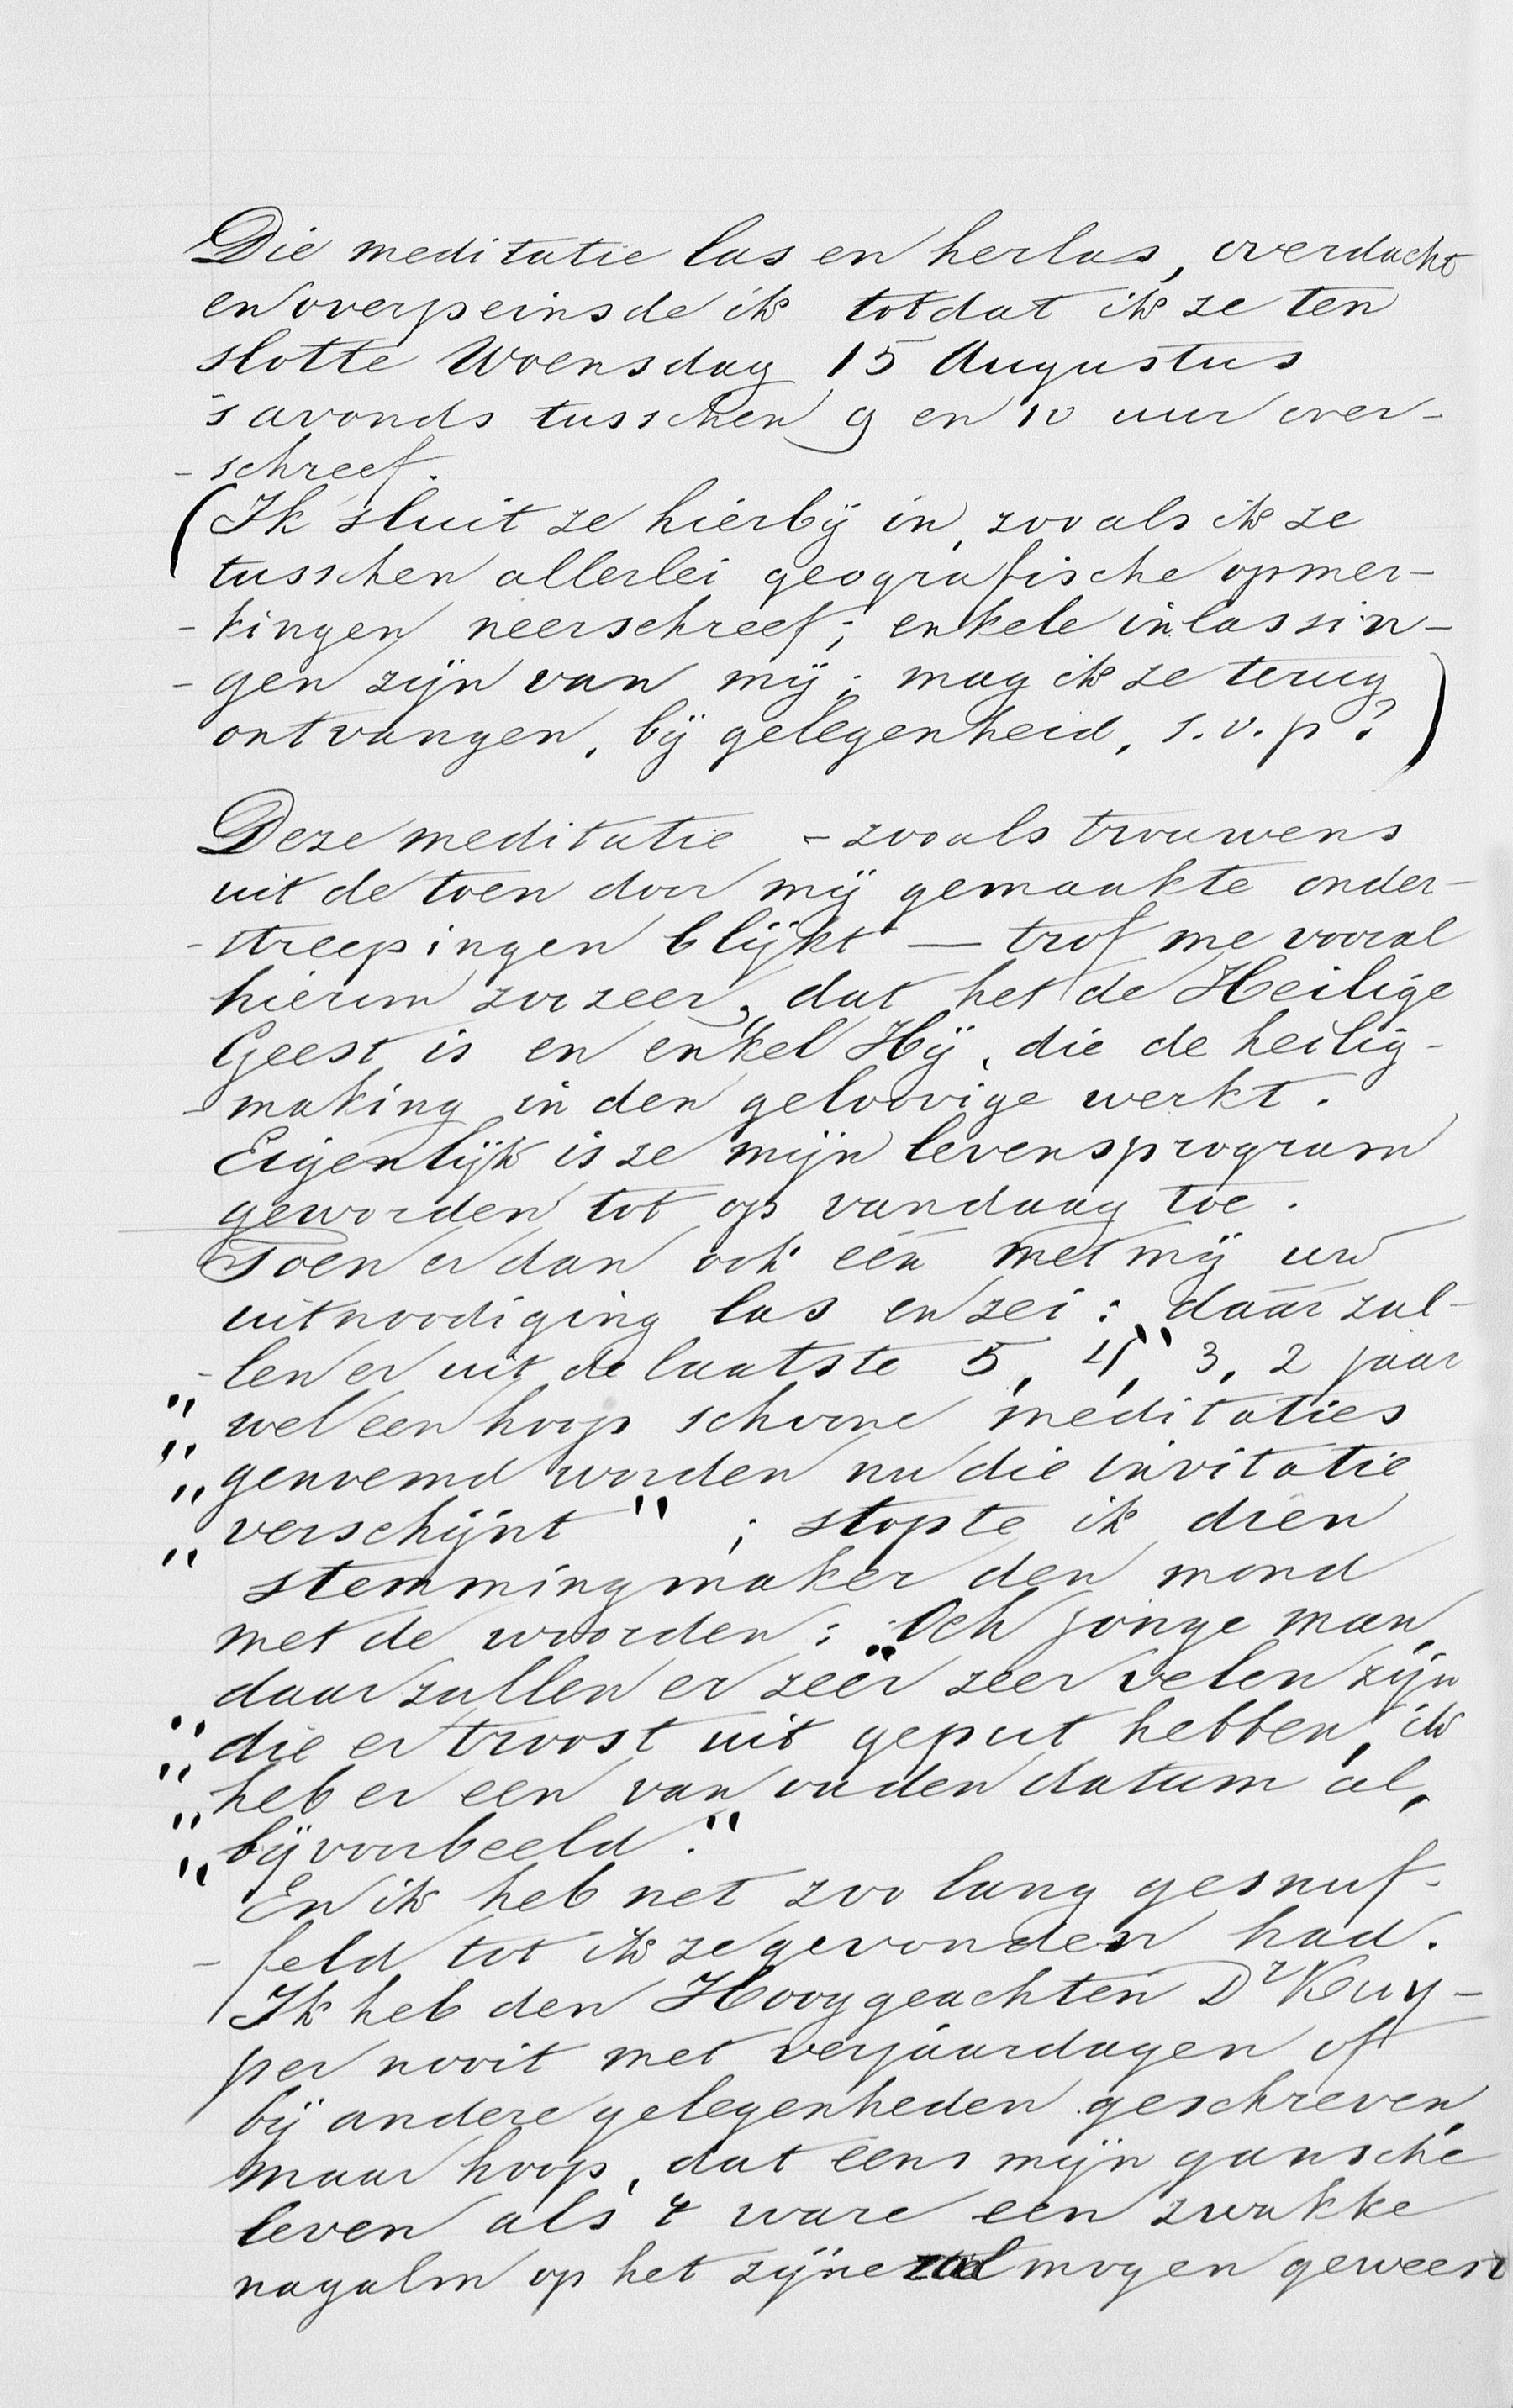 Die meditatie las en herlas, overdacht
en overpeinsde ik totdat ik ze ten
slotte Woensdag 15 Augustus
's avonds tusschen 9 en 10 uur over-
-schreef.
(Ik sluit ze hierbij in, zooals ik ze
tusschen allerlei geografische opmer-
-kingen neerschreef; enkele inlassin-
-gen zijn van mij; mag ik ze terug
ontvangen, bij gelegenheid, s.v.p?)
Deze meditatie - zooals trouwens
uit de toen door mij gemaakte onder-
-streepingen blijkt — trof me vooral
hierom zoozeer, dat het de Heilige
Geest is en enkel Hij, die de heilig-
-making in den geloovige werkt.
Eigenlijk is ze mijn levensprogram
geworden tot op vandaag toe.
Toen er dan ook één met mij uw
uitnoodiging las en zei: „daar zul-
-len er uit de laatste 5, 4, 3, 2 jaar
„ wel een hoop schoone meditaties
„ genoemd worden nu die invitatie
„ verschijnt" ; stopte ik dien
stemmingmaker den mond
met de woorden: „Och jonge man,
daar zullen er zeer zeer velen zijn
„ die er troost uit geput hebben, ik
„ heb er een van ouden datum al,
„ bijvoorbeeld."
En ik heb net zoo lang gesnuf-
-feld tot ik ze gevonden had.
Ik heb den Hooggeachten Dr Kuy-
per nooit met verjaardagen of
bij andere gelegenheden geschreven,
maar hoop, dat eens mijn gansche
leven als 't ware een zwakke
nagalm op het zijne zal mogen geweest